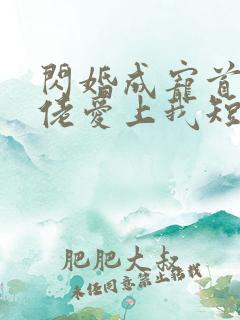 閃婚成寵首
佬愛上我短
肥肥大叔
未经同意禁止转载